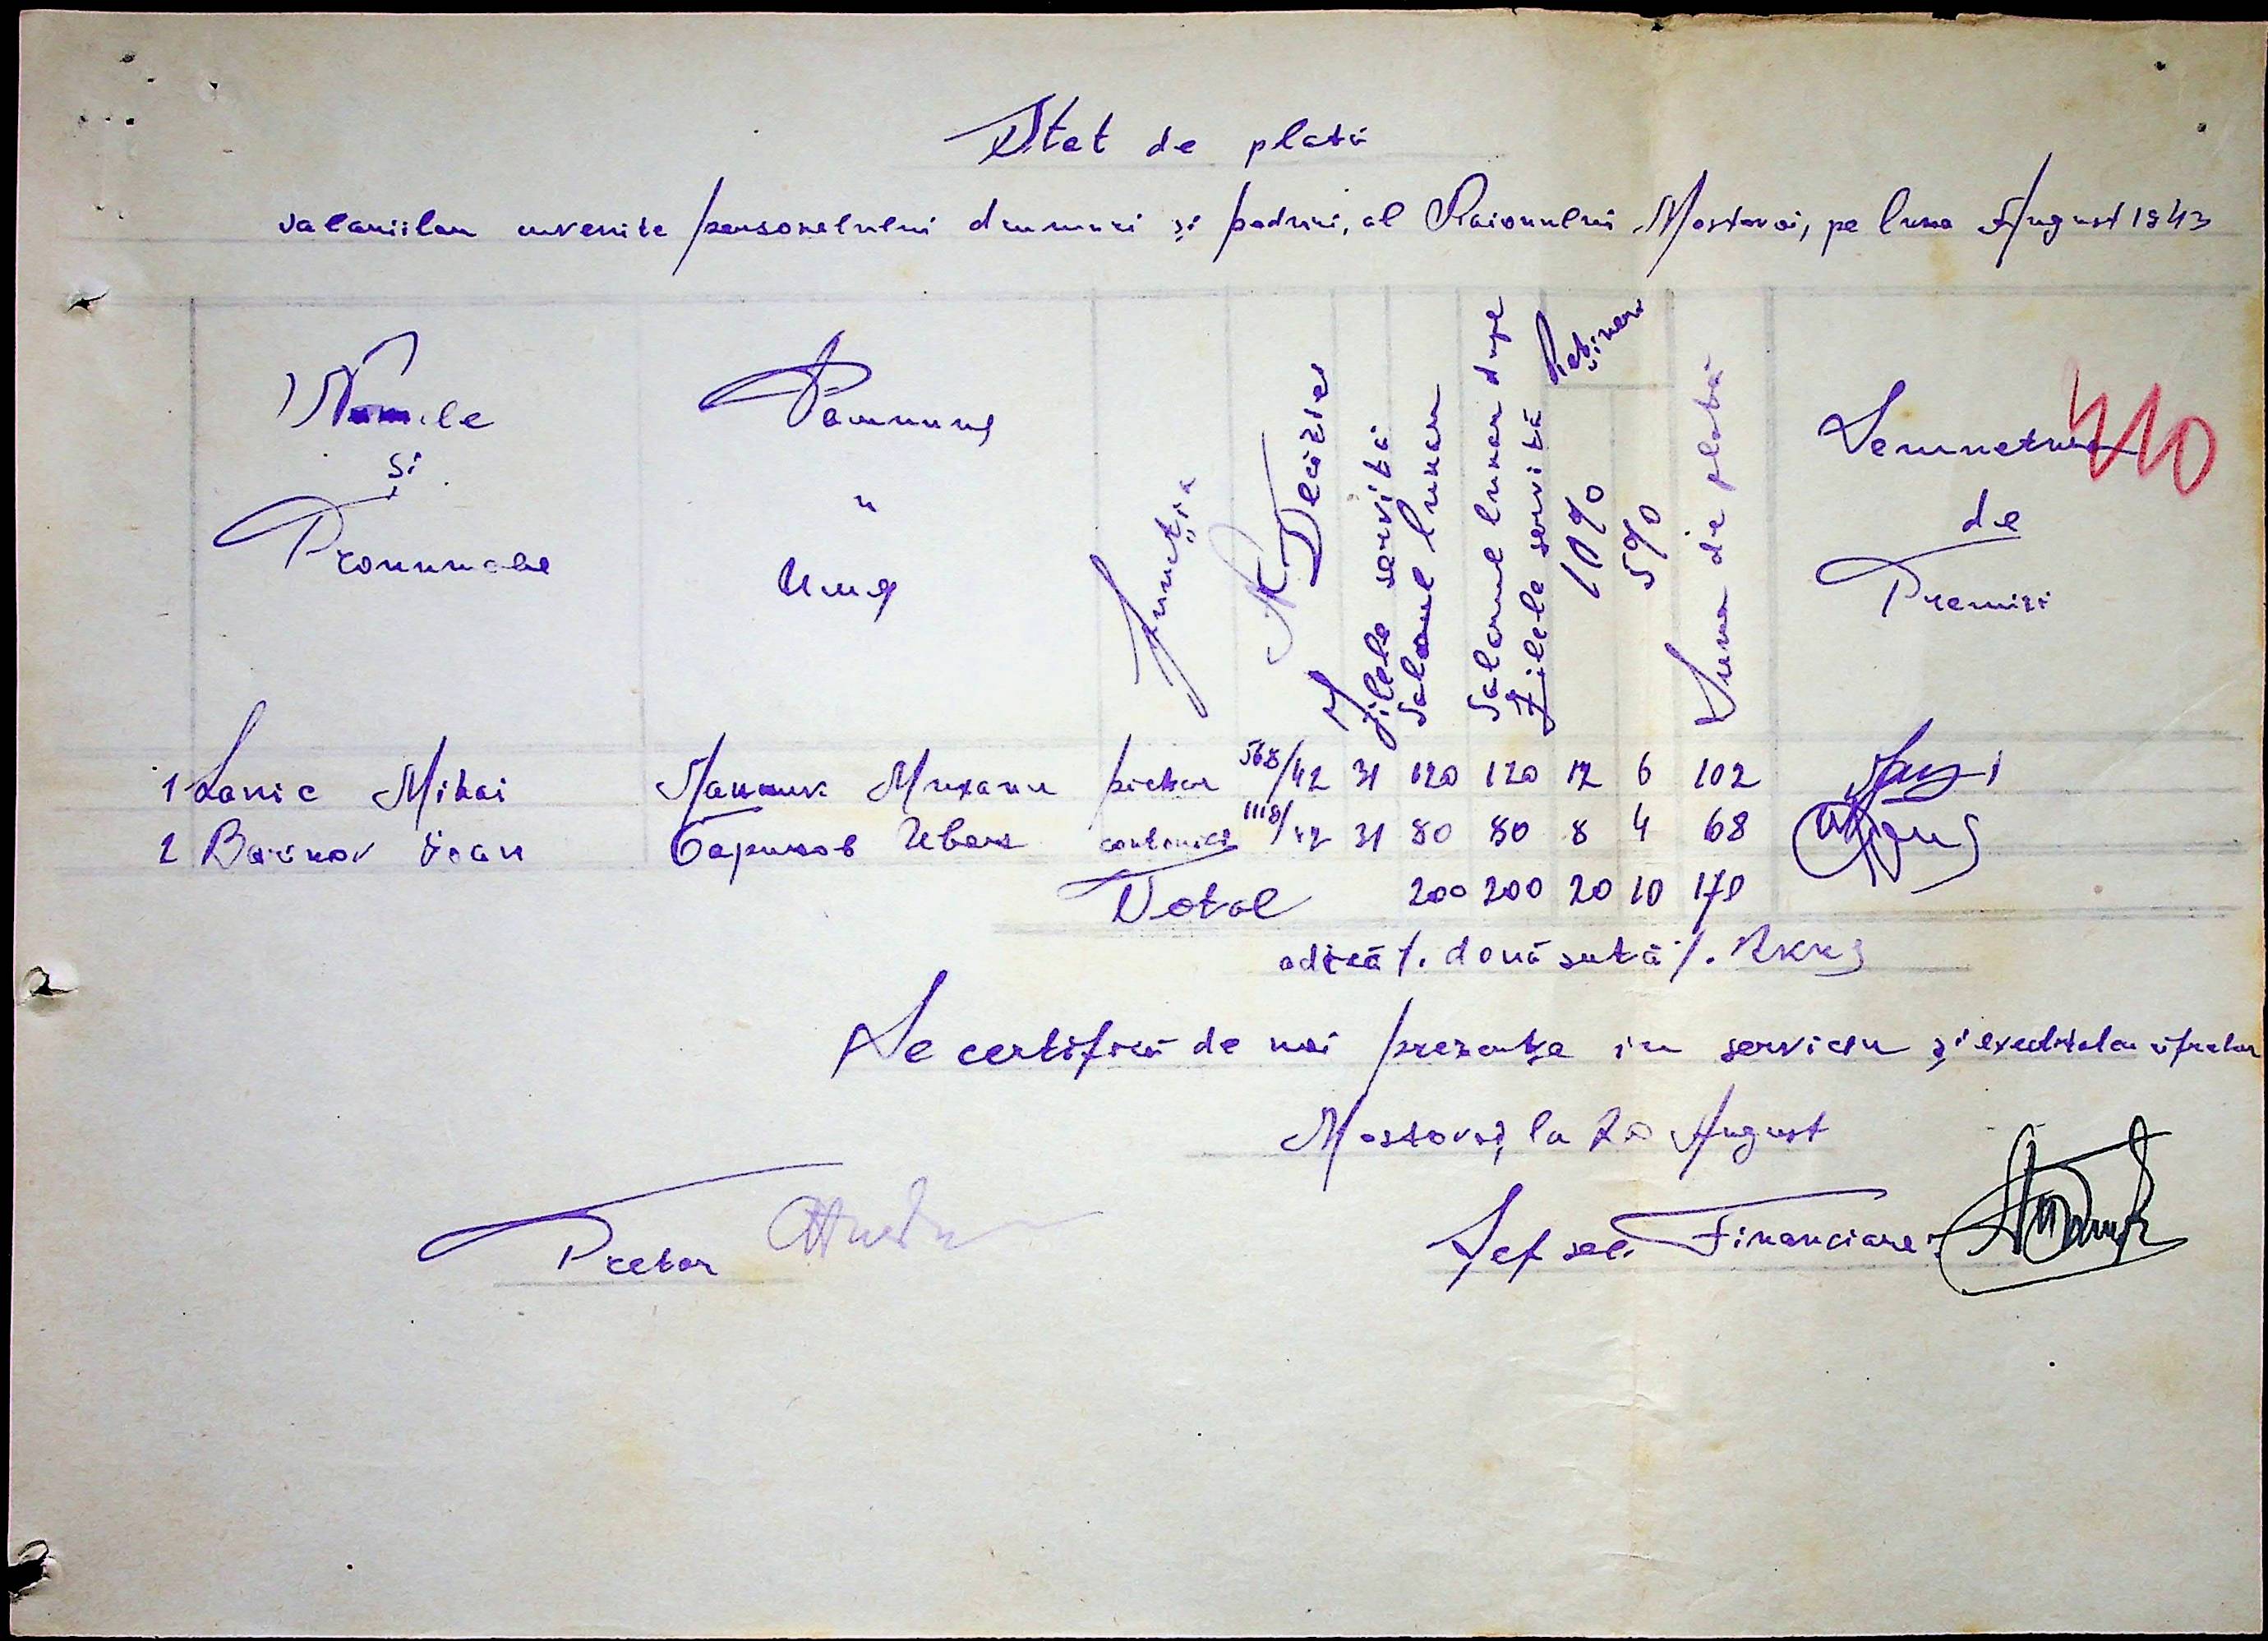 Stat de plată
salariilor cuvenite personalului drumuri și poduri, al Raionului Mostovoi, pe luna August 1943
Numele
și
Pronumele
Фамилия
и
Имя
Funcția
Nr Deciziei
Zilele servită
Salarul lunar
Salarul lunar dupe
Zilele servită
Rețineri
10%
5%
Suma de plată
Semnetura
de
Premiri
410
1 Lanic Mihai Ланник Михаил picher 568/42 31 120 120 12 6 102
2 Barinov Ioan Баринов Иван cantonier 1118/42 31 80 80 8 4 68
Total 200 200 20 10 170
adică /. două sută /. RKKS
Se certifică de noi prezența in serviciu și exactitatea cifrelor
Mostovoi, la 20 August
Pretor
Șef sec. Financiare